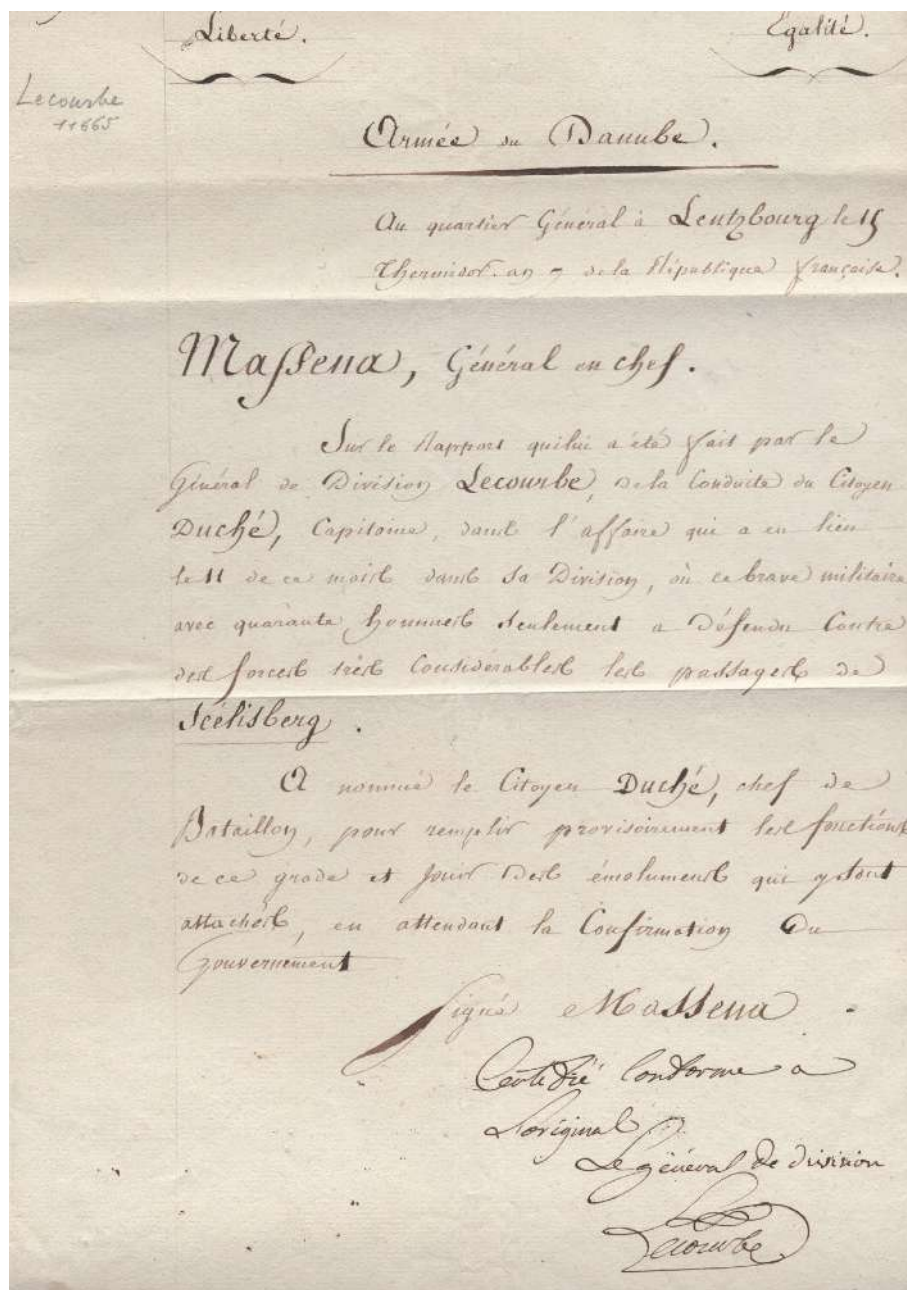 Liberté. Égalité.
Lecourbe
11665
Armée du Danube.
Au quartier Général à Lentzbourg le 15
Thermidor. an 7 de la République française.
Massena, Général en chef.
Sur le Rapport qui lui a été fait par le
Général de Division Lecourbe, de la Conduite du Citoyen
Duché, Capitaine, dans l'affaire qui a eu lieu
le 11 de ce mois dans sa Division, où ce brave militaire
avec quarante hommes seulement a défendu Contre
des forces très Considérables les passages de
Scélisberg.
A nommé le Citoyen Duché, chef de
Bataillon, pour remplir provisoirement les fonctions
de ce grade et jouir des émoluments qui y sont
attachés, en attendant la Confirmation Du
Gouvernement
Signé Massena
Certifié Conforme a
Loriginal
Le général De division
Lecourbe